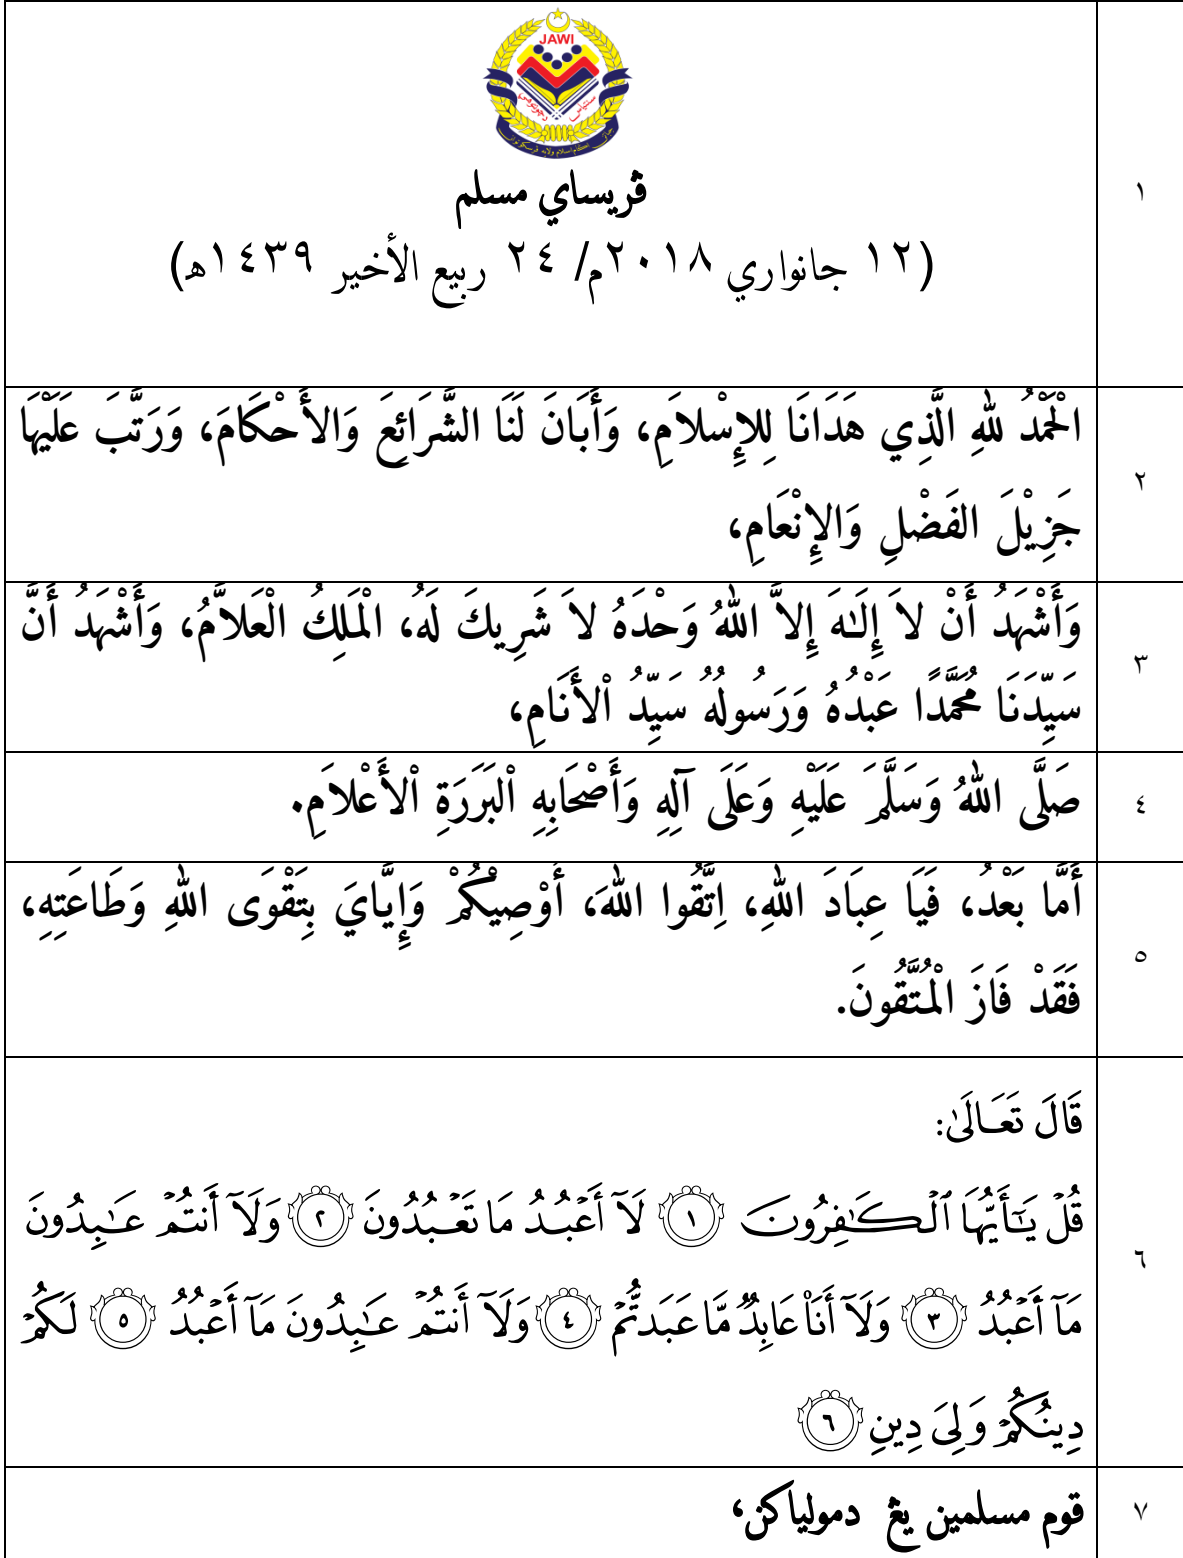 JAWI
ڤريساي مسلم
(١٢ جانواري ٢٠١٨م/ ٢٤ ربيع الأخير ١٤٣٩ه)
١
الْحَمْدُ للهِ الَّذِي هَدَانَا لِلإِسْلاَمِ، وَأَبَانَ لَنَا الشَّرَائِعَ وَالأَحْكَامَ، وَرَتَّبَ عَلَيْهَا
جَزِيْلَ الفَضْلِ وَالإِنْعَامِ،
٢
وَأَشْهَدُ أَنْ لاَ إِلَـٰهَ إِلاَّ اللهُ وَحْدَهُ لاَ شَرِيكَ لَهُ، الْمَلِكُ الْعَلاَّمُ، وَأَشْهَدُ أَنَّ
سَيِّدَنَا مُحَمَّدًا عَبْدُهُ وَرَسُولُهُ سَيِّدُ اْلأَنَامِ،
٣
صَلَّى اللهُ وَسَلَّمَ عَلَيْهِ وَعَلَى آلِهِ وَأَصْحَابِهِ اْلبَرَرَةِ اْلأَعْلامِ.
٤
أَمَّا بَعْدُ، فَيَا عِبَادَ اللهِ، اِتَّقُوا اللهَ، أُوْصِيْكُمْ وَإِيَّايَ بِتَقْوَى اللهِ وَطَاعَتِهِ،
فَقَدْ فَازَ الْمُتَّقُونَ.
٥
قَالَ تَعَـالَىٰ:
قُلْ يَـٰٓأَيُّهَا ٱلْكَـٰفِرُونَ ١ لَآ أَعْبُدُ مَا تَعْبُدُونَ ٢ وَلَآ أَنتُمْ عَـٰبِدُونَ
مَآ أَعْبُدُ ٣ وَلَآ أَنَا۠ عَابِدٌ مَّا عَبَدتُّمْ ٤ وَلَآ أَنتُمْ عَـٰبِدُونَ مَآ أَعْبُدُ ٥ لَكُمْ
دِينُكُمْ وَلِىَ دِينِ ٦
٦
قوم مسلمين يڠ دمولياكن،
٧